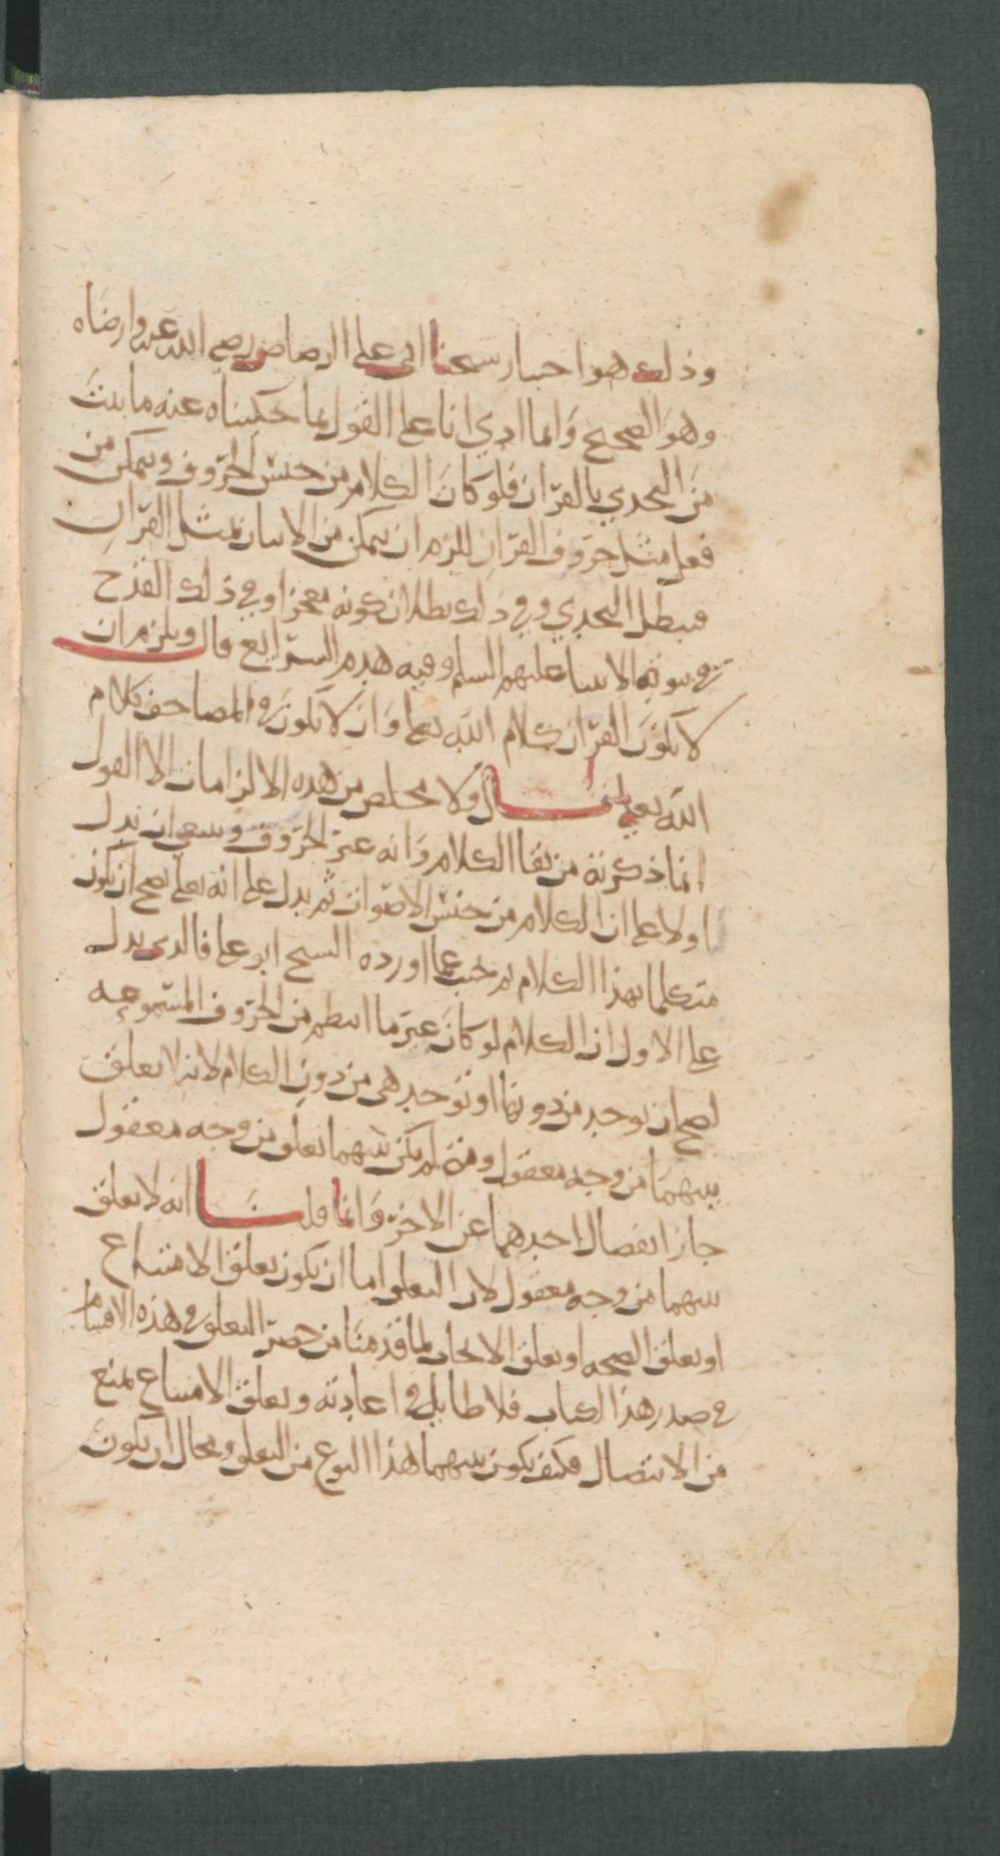 وذلك هو اختيار شيخنا ابي علي الرصاص رضي الله عنه وارضاه
وهو الصحيح وانما ادى انا على القول بما حكيناه عنه ما يثبت
من التحدي بالقرآن فلو كان الكلام من جنس الحروف ويمكن من
فعل مثل حروف القرآن للزم ان يمكن من الاتيان بمثل القرآن
فبطل التحدي وفي ذلك بطلان كونه معجزا وفي ذلك القدح
في نبوة الانبيا عليهم السلم وفيه هدم الشرايع قال ويلزم ان
لا يكون القرآن كلام الله تعالى وان لا يكون في المصاحف كلام
الله تعالى قال ولا مخلص من هذه الالزامات الا القول
انما ذكرته من بقا الكلام وانه غير الحروف وينبغي ان ندل
اولا على ان الكلام من جنس الاصوات ثم ندل على انه تعالى يصح ان يكون
متكلما بهذا الكلام ثم نجيب عما اورده الشيخ ابو علي فالذي يدل
على الاول ان الكلام لو كان غير ما انتظم من الحروف المسموعه
لصح ان يوجد من دونها او توجد هي من دون الكلام لانه لا تعلق
بينهما من وجه معقول ومتى لم يكن بينهما تعلق من وجه معقول
جاز انفصال احدهما عن الاخر وانما قلنا انه لا تعلق
بينهما من وجه معقول لان التعلق اما ان يكون تعلق الامتناع
او تعلق الصحه او تعلق الايجاب لما قدمنا من حصر التعلق في هذه الاقسام
في صدر هذا الكتاب فلا طايل في اعادته وتعلق الامتناع يمنع
من الاتصال فكيف يكون بينهما هذا النوع من التعلق ومحال ان يكون